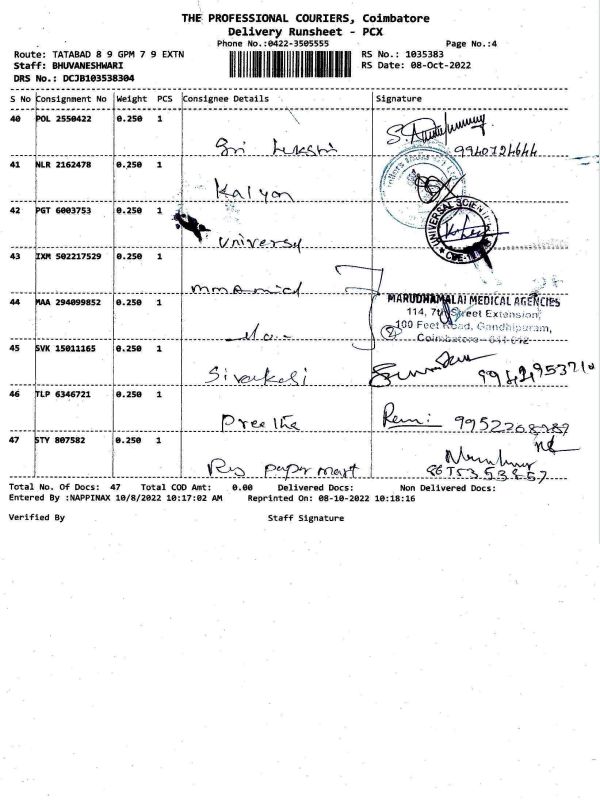 THE PROFESSIONAL COURIERS, Coimbatore
Delivery Runsheet - PCX
Phone No.:0422-3505555
Page No.:4
Route: TATABAD 8 9 GPM 7 9 EXTN
RS No.: 1035383
Staff: BHUVANESHWARI
RS Date: 08-Oct-2022
DRS No.: DCJB103538304
S No Consignment No Weight PCS Consignee Details Signature
40 POL 2550422 0.250 1
Sri Lakshi
9940724644
41 NLR 2162478 0.250 1
Kalyon
42 PGT 6003753 0.250 1
Universal
UNIVERSAL SCIENTIFIC
43 IXM 502217529 0.250 1
44 MAA 294099852 0.250 1
MARUDHAMALAI MEDICAL AGENCIES
114, 7th Street Extension,
100 Feet Road, Gandhipuram,
Coimbatore - 641 012
45 SVK 15011165 0.250 1
Sivakasi
46 TLP 6346721 0.250 1
Preetha
47 STY 807582 0.250 1
paper mart
Total No. Of Docs: 47 Total COD Amt: 0.00 Delivered Docs: Non Delivered Docs:
Entered By :NAPPINAX 10/8/2022 10:17:02 AM Reprinted On: 08-10-2022 10:18:16
Verified By Staff Signature